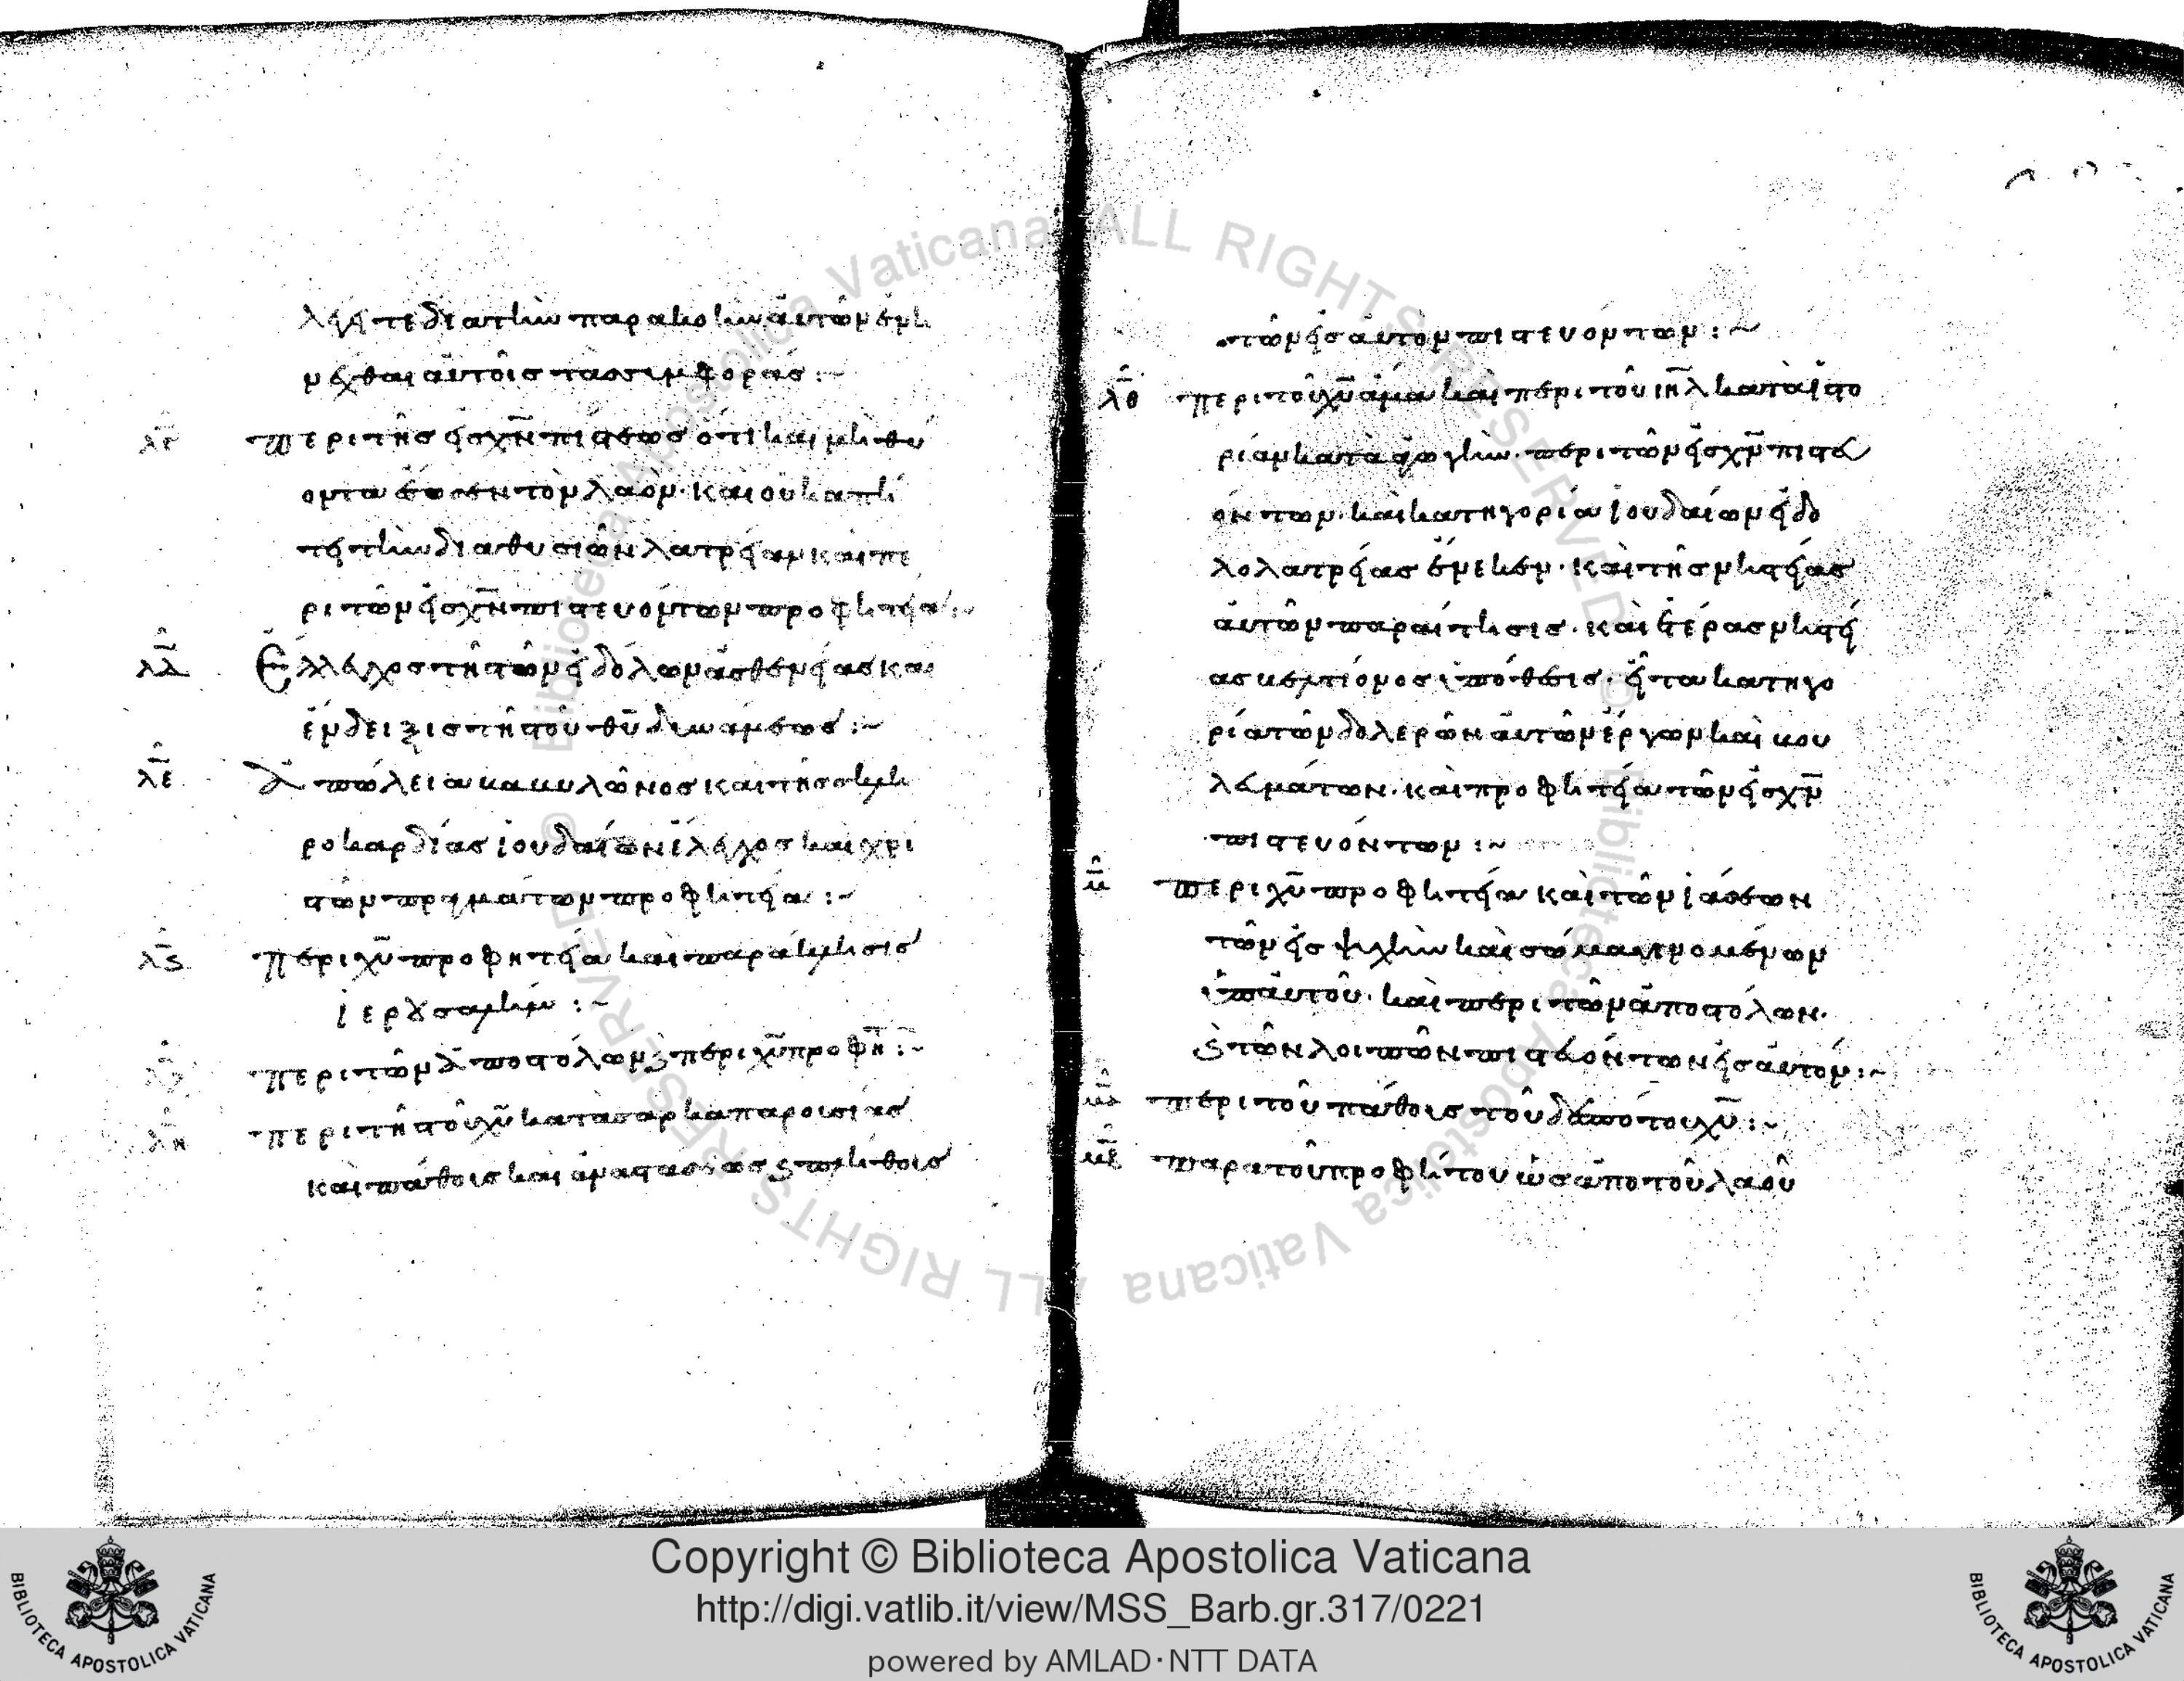 λέγεται διὰ τὴν παρακοὴν αὐτῶν
αὐτοῖς τὰς συμφοράς :~
λγ περὶ τῆς εἰς χν πίστεως ὅτι καὶ μὴ θύ
οντα ἔσωσεν τὸν λαόν· καὶ οὐκ ἀπῄ
τει τὴν διὰ θυσιῶν λατρείαν καὶ πε
ρὶ τῶν εἰς χν πιστευόντων προφητεία :~
λδ Ἔλλεγχος τῆς τῶν εἰδόλων ἀσθενείας και
ἔνδειξις τῆς τοῦ θυ δυνάμεως :~
λε Ἀπώλεια βαβυλῶνος καὶ τῆς σκλη
ροκαρδίας ἰουδαίων ἔλεγχος καὶ χρι
στῶν πραγμάτων προφητεία :~
λς περὶ χυ προφητεία καὶ παράκλησις
ἰερουσαλήμ :~
λζ περὶ τῶν ἀποστόλων καὶ περὶ χυ προφη :~
λη περὶ τῆς τοῦ χυ κατὰ σάρκα παρουσίας
καὶ πάθους καὶ ἀναστάσεως καὶ πλήθους
τῶν εἰς αὐτὸν πιστευόντων :~
λθ περὶ τοῦ χυ ἅμα καὶ περὶ τοῦ ιηλ κατὰ ἱστο
ρίαν κατὰ ἀγωγήν· περὶ τῶν εἰς χν πιστευ
όντων· καὶ κατηγορία ἰουδαίων εἰδο
λολατρείας ἕνεκεν· καὶ τῆς νηστείας
αὐτῶν παραίτησις· καὶ ἑτέρας νηστεί
ας βελτίονος ὑπόθεσις· εἶτα κατηγο
ρία τῶν δολερῶν αὐτῶν ἔργων καὶ βου
λευμάτων· καὶ προφητεία τῶν εἰς χν
πιστευόντων :~
μ περὶ χυ προφητεία καὶ τῶν ἰάσεων
τῶν εἰς ψυχὴν καὶ σώμα γενομένων
ὑπ αὐτοῦ· καὶ περὶ τῶν ἀποστόλων·
καὶ τῶν λοιπῶν πιστευόντων εἰς αὐτόν :~
μα περὶ τοῦ πάθους τοῦ δεσπότου χυ :~
μβ παρὰ τοῦ προφήτου ὡς ἀπὸ τοῦ λαοῦ
Copyright © Biblioteca Apostolica Vaticana
http://digi.vatlib.it/view/MSS_Barb.gr.317/0221
powered by AMLAD·NTT DATA
BIBLIOTECA APOSTOLICA VATICANA
BIBLIOTECA APOSTOLICA VATICANA